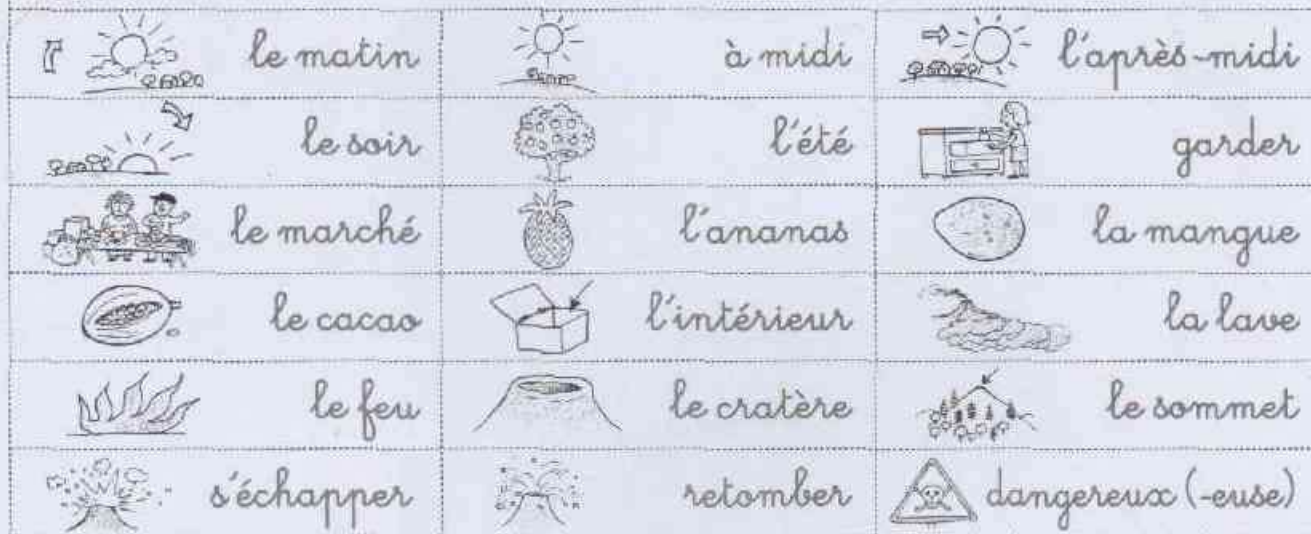 le matin à midi l'après-midi
le soir l'été garder
le marché l'ananas la mangue
le cacao l'intérieur la lave
le feu le cratère le sommet
s'échapper retomber dangereux (-euse)